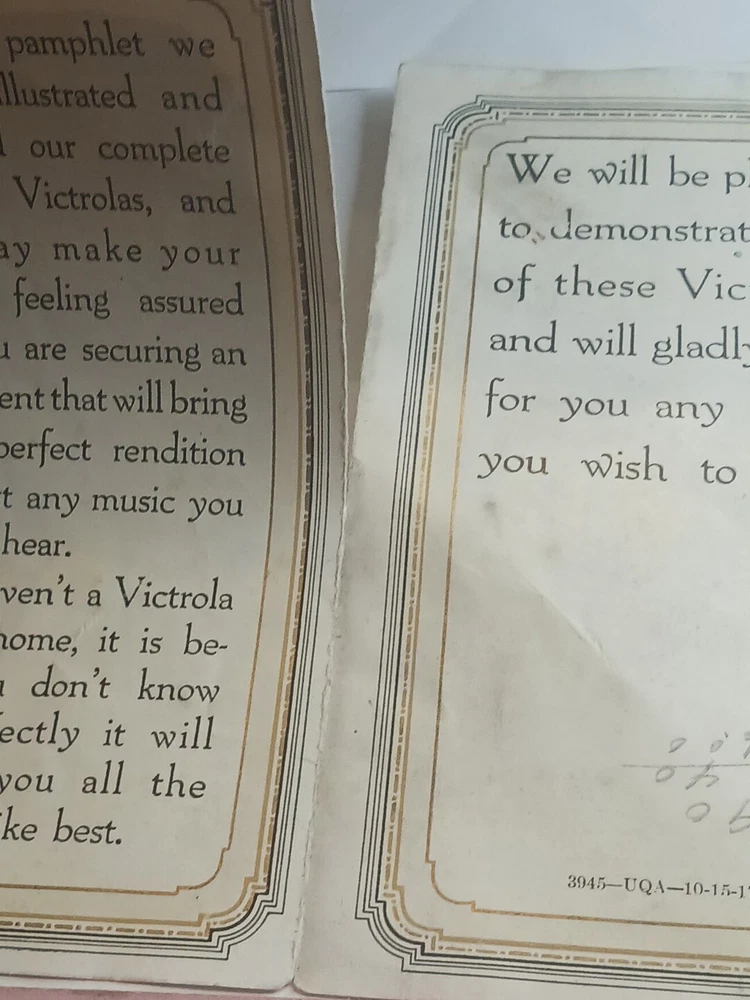 pamphlet we
llustrated and
our complete
Victrolas, and
ay make your
feeling assured
u are securing an
ent that will bring
perfect rendition
t any music you
hear.
ven't a Victrola
home, it is be-
don't know
ectly it will
you all the
ke best.
We will be p
to demonstrat
of these Vic
and will gladly
for you any
you wish to
3945—UQA—10-15-1